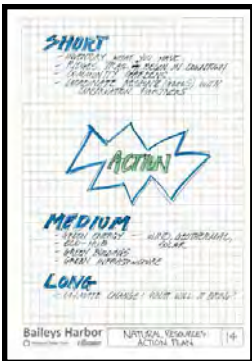 SHORT
- INVENTORY WHAT YOU HAVE
IN DOWNTOWN
- COMMUNITY GARDENS
- COORDINATE WITH
CONSERVATION PARTNERS
ACTION
MEDIUM
- GREEN ENERGY - WIND, GEOTHERMAL,
SOLAR
- ECO-HUB
- GREEN BUILDINGS
- GREEN INFRASTRUCTURE
LONG
- CLIMATE CHANGE! WHAT WILL IT BRING?
Baileys Harbor
NATURAL RESOURCES
ACTION PLAN
14